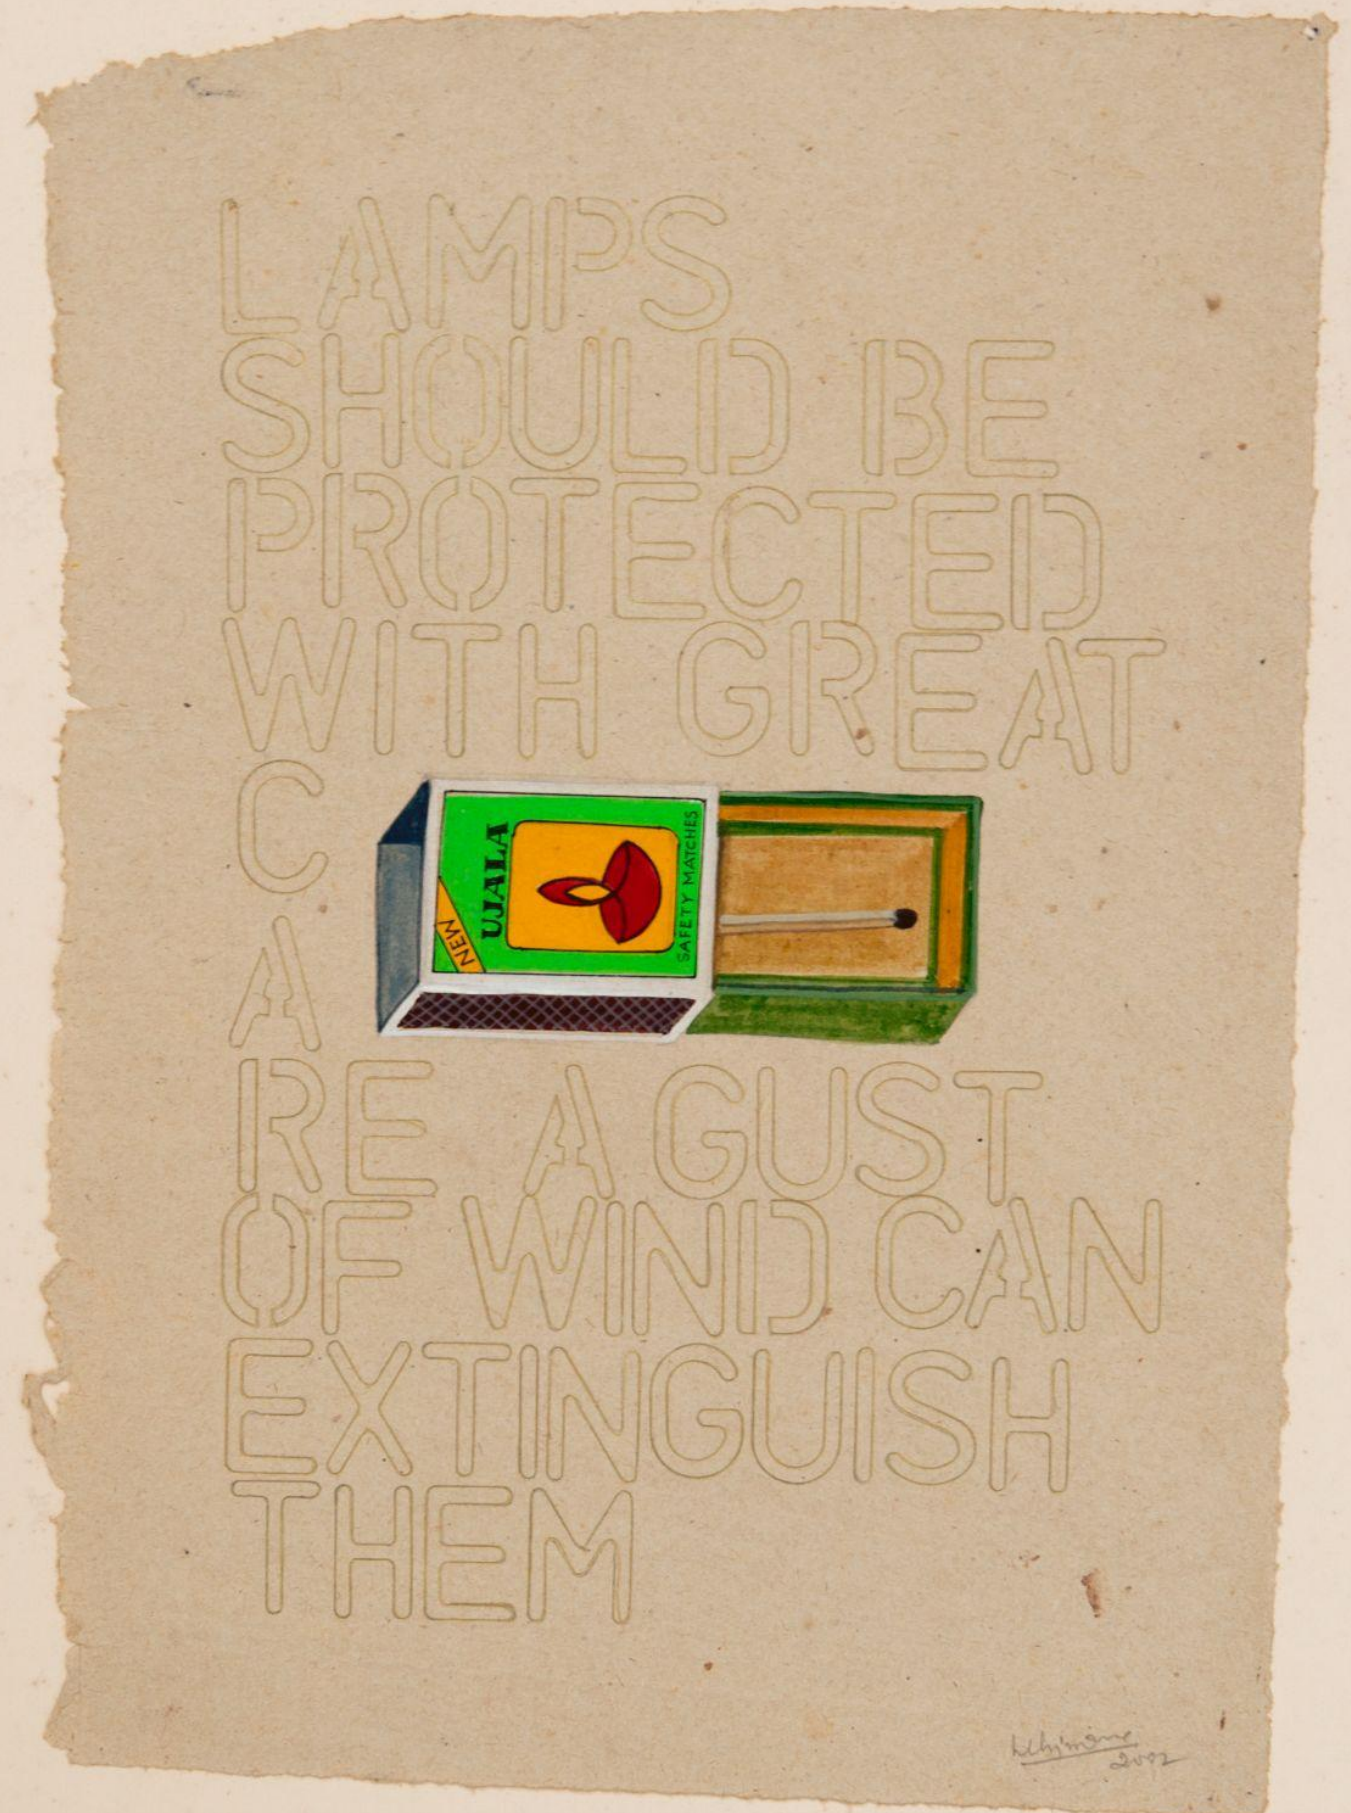 LAMPS
SHOULD BE
PROTECTED
WITH GREAT
C
A
RE A GUST
OF WIND CAN
EXTINGUISH
THEM
NEW
UJALA
SAFETY MATCHES
2002